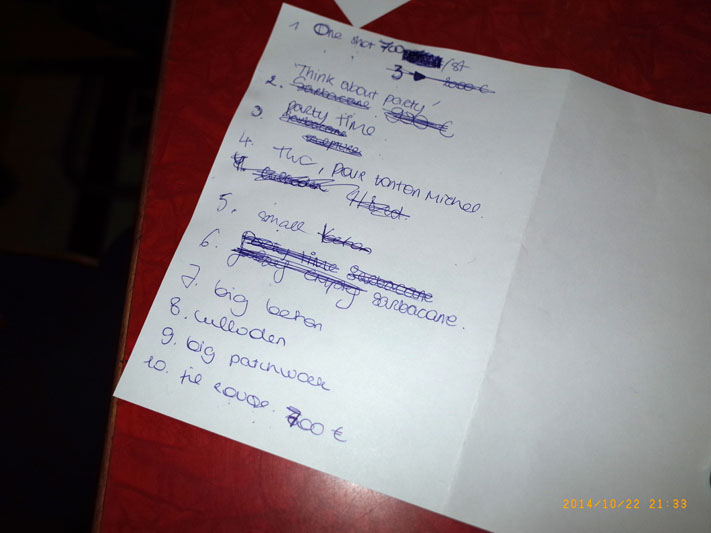 1 One shot 700 /st
3 → 1000 €
Think about party
2. Sarbacane 900 €
3. party time
Sarbacane
4. TWC, pour tonton Michel.
4. Culloden
5. small beton
6. Party time Sarbacane
sarbacane.
7. big beton
8. culloden
9. big patchwork
10. fil rouge. 700 €
2014/10/22 21:33